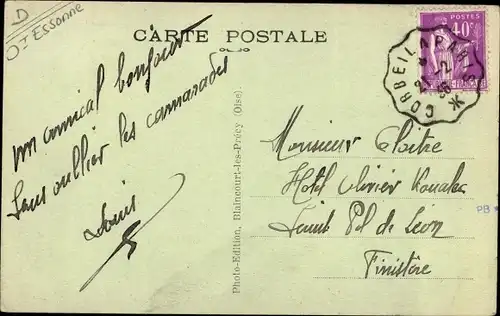 D
Dt Essonne
CARTE POSTALE
POSTES
40c
CORBEIL A PARIS
un amical bonjour
Sans oublier les camarades
Louis
Photo-Edition, Blaincourt-les-Précy (Oise).
Monsieur Cloitre
Hotel Olivier
Saint Pol de Léon
Finistère
PB